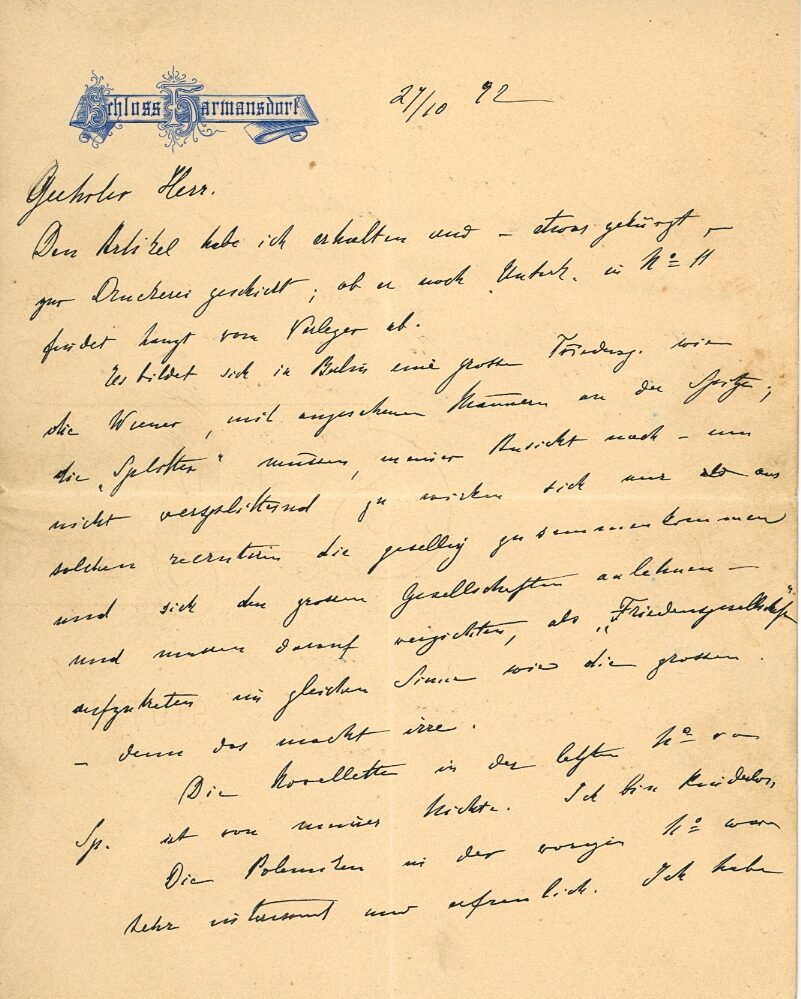 Schloss Harmansdorf
27/10 92
Geehrter Herr.
Den Artikel habe ich erhalten und – etwas gekürzt –
zur Druckerei geschickt; ob er noch in No 11
findet hängt vom Verleger ab.
Es bildet sich in Berlin eine grosse Friedensg. wie
die Wiener, mit angesehenen Männern an der Spitze;
die „Splitter“ müssen, meiner Ansicht nach – um
nicht versplitternd zu wirken sich nur aus
solchen recrutiren die gesellig zusammenkommen
und sich den grossen Gesellschaften anlehnen –
und müssen darauf verzichten, als „Friedensgesellschaft“
aufzutreten im gleichen Sinne wie die grossen.
– denn das macht irre.
Die Novellette in der letzten No von
Sp. ist von meiner Nichte. Ich bin kinderlos,
Die Polemiken in der vorigen No waren
sehr interessant und erfreulich. Ich habe